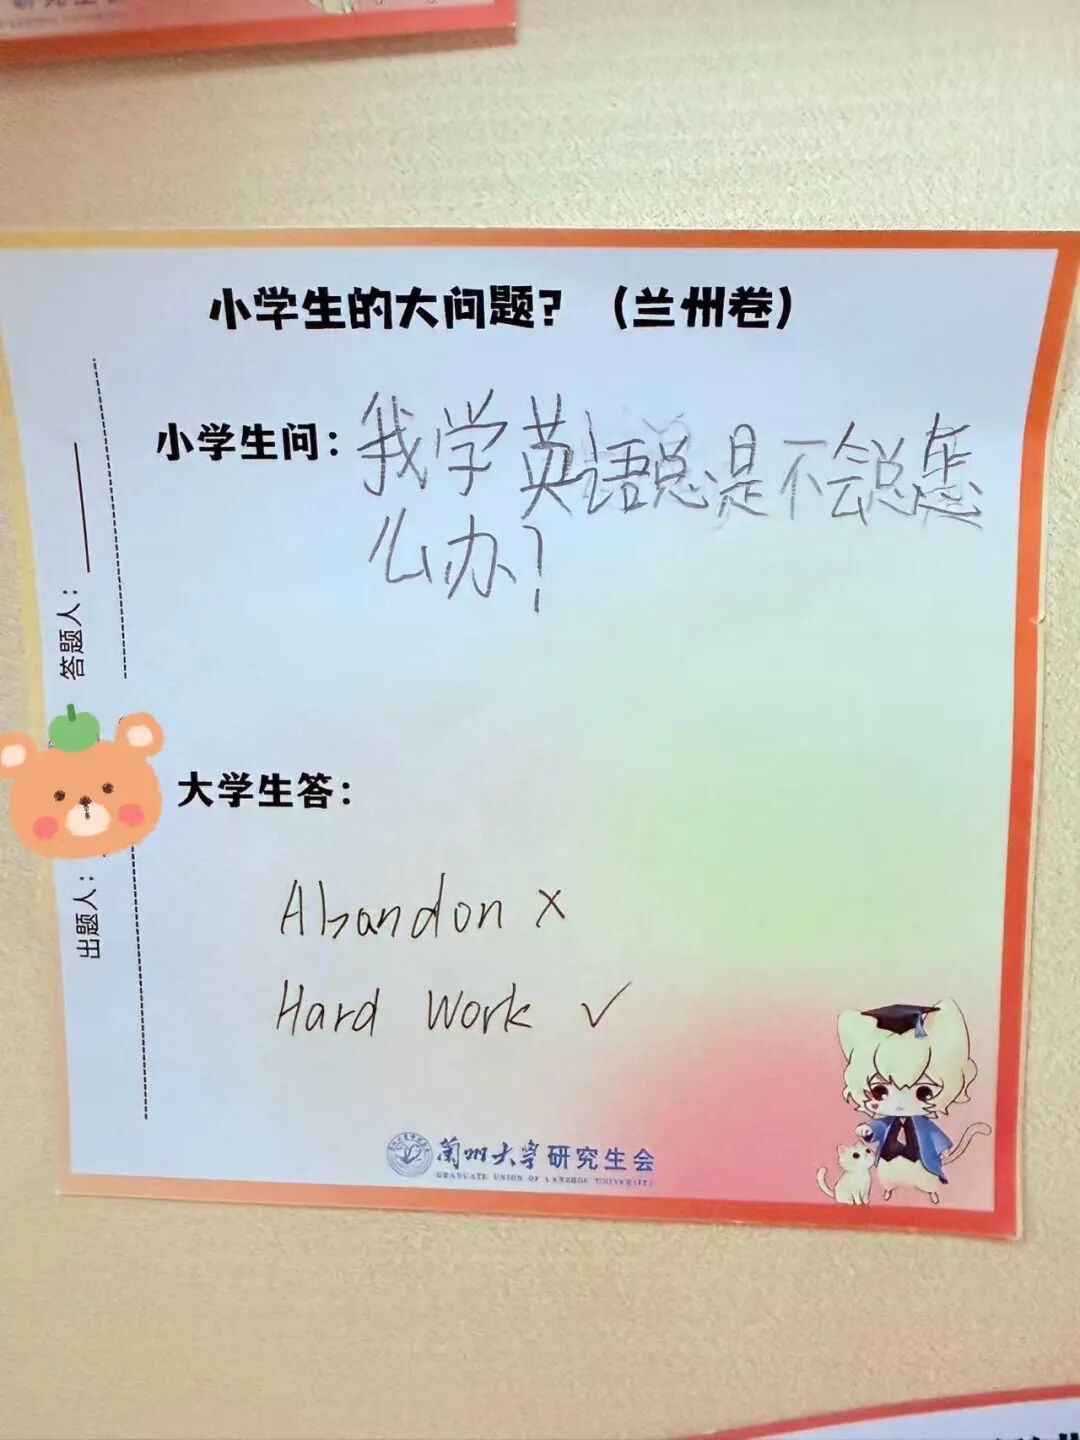 小学生的大问题？（兰州卷）
小学生问：我学英语总是不会总怎
么办？
答题人：
大学生答：
出题人：
Abandon ×
Hard Work ✓
兰州大学研究生会
GRADUATE UNION OF LANZHOU UNIVERSITY